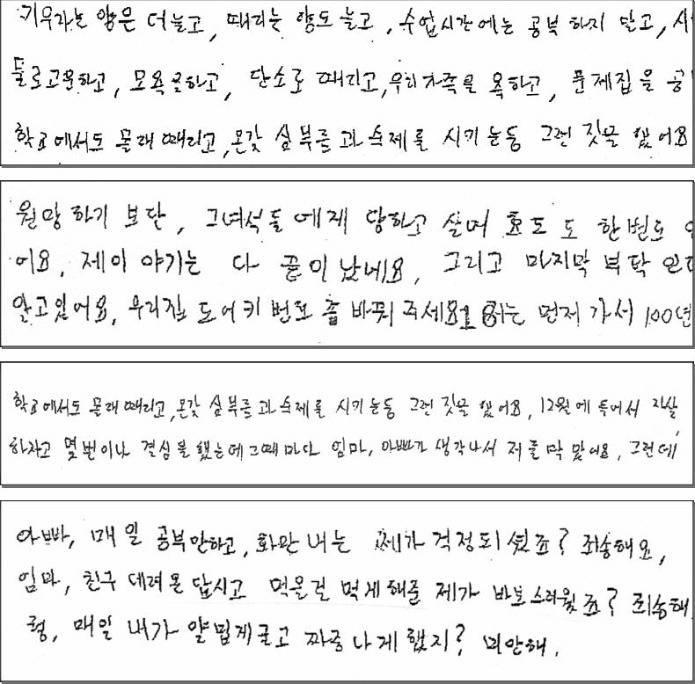 키우라는 양은 더 늘고, 때리는 양도 늘고, 수업시간에는 공부 하지 말고, 시
물로고문하고, 모욕을하고, 단소로 때리고,우리가족을 욕하고, 문제집을 공
학교에서도 몰래 때리고,온갖 심부름과 숙제를 시키는등 그런 짓을 했어요
원망하기 보단, 그녀석들에게 당하고 살며 효도도 한번도
어요, 제 이야기는 다 끝이 났네요, 그리고 마지막 부탁인데
알고있어요, 우리집 도어키 번호 좀 바꿔 주세요. 저는 먼저 가서 100년
학교에서도 몰래 때리고,온갖 심부름과 숙제를 시키는등 그런 짓을 했어요, 12월에 들어서 자살
하자고 몇번이나 결심을 했는데 그때마다 엄마, 아빠가 생각나서 저를 막았어요, 그런데
아빠, 매일 공부안하고, 화만 내는 제가 걱정되셨죠? 죄송해요,
엄마, 친구 데려온답시고 먹을걸 먹게해준 제가 바보스러웠죠? 죄송해
형, 매일 내가 얄밉게굴고 짜증나게 했지? 미안해,